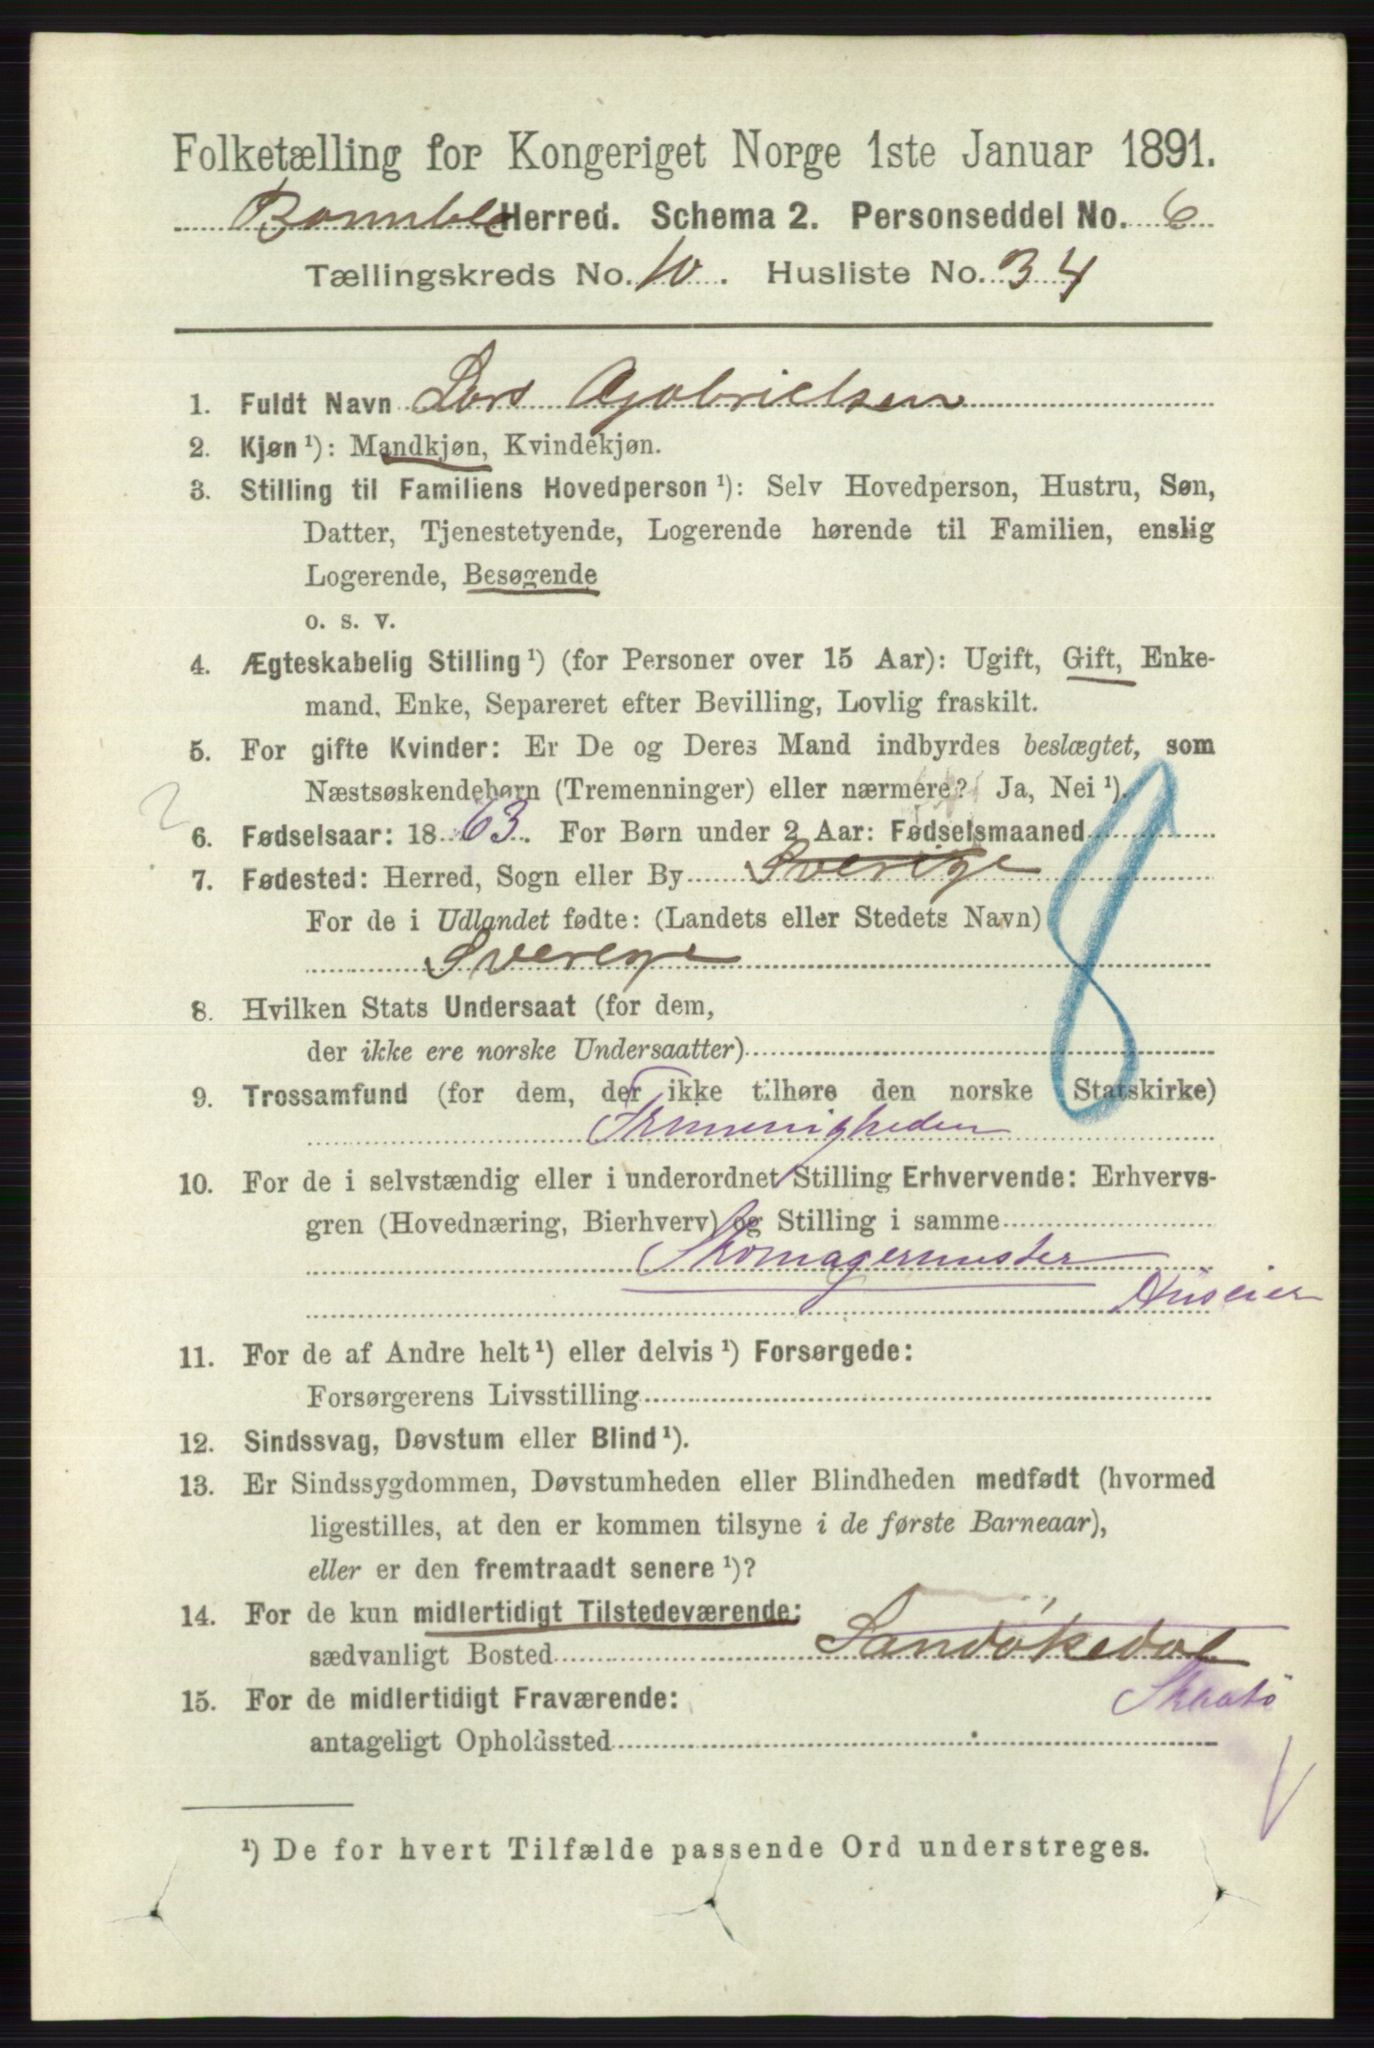 Folketælling for Kongeriget Norge 1ste Januar 1891.
Bamble Herred. Schema 2. Personseddel No. 6
Tællingskreds No. 10. Husliste No. 34
1. Fuldt Navn Lars Gabrielsen
2. Kjøn ¹): Mandkjøn, Kvindekjøn.
3. Stilling til Familiens Hovedperson ¹): Selv Hovedperson, Hustru, Søn,
Datter, Tjenestetyende, Logerende hørende til Familien, enslig
Logerende, Besøgende
o. s. v.
4. Ægteskabelig Stilling ¹) (for Personer over 15 Aar): Ugift, Gift, Enke-
mand, Enke, Separeret efter Bevilling, Lovlig fraskilt.
5. For gifte Kvinder: Er De og Deres Mand indbyrdes beslægtet, som
Næstsøskendebørn (Tremenninger) eller nærmere? Ja, Nei ¹).
2
6. Fødselsaar: 1863. For Børn under 2 Aar: Fødselsmaaned
7. Fødested: Herred, Sogn eller By Sverige
For de i Udlandet fødte: (Landets eller Stedets Navn)
Sverege
8
8. Hvilken Stats Undersaat (for dem,
der ikke ere norske Undersaatter)
9. Trossamfund (for dem, der ikke tilhøre den norske Statskirke)
Frimenigheden
10. For de i selvstændig eller i underordnet Stilling Erhvervende: Erhvervs-
gren (Hovednæring, Bierhverv) og Stilling i samme
Skomagermester
Huseier
11. For de af Andre helt ¹) eller delvis ¹) Forsørgede:
Forsørgerens Livsstilling
12. Sindssvag, Døvstum eller Blind ¹).
13. Er Sindssygdommen, Døvstumheden eller Blindheden medfødt (hvormed
ligestilles, at den er kommen tilsyne i de første Barneaar),
eller er den fremtraadt senere ¹)?
14. For de kun midlertidigt Tilstedeværende:
sædvanligt Bosted Sandøkedal
Skaatø
15. For de midlertidigt Fraværende:
antageligt Opholdssted
¹) De for hvert Tilfælde passende Ord understreges.